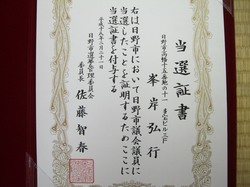 当選証書
日野市高幡十五番地の十一 幸宝ビル三F
峯岸弘行
右は日野市において日野市議会議員に
当選したことを証明するためここに
当選証書を付与する
平成十八年二月二十一日
日野市選挙管理委員会
委員長 佐藤智春